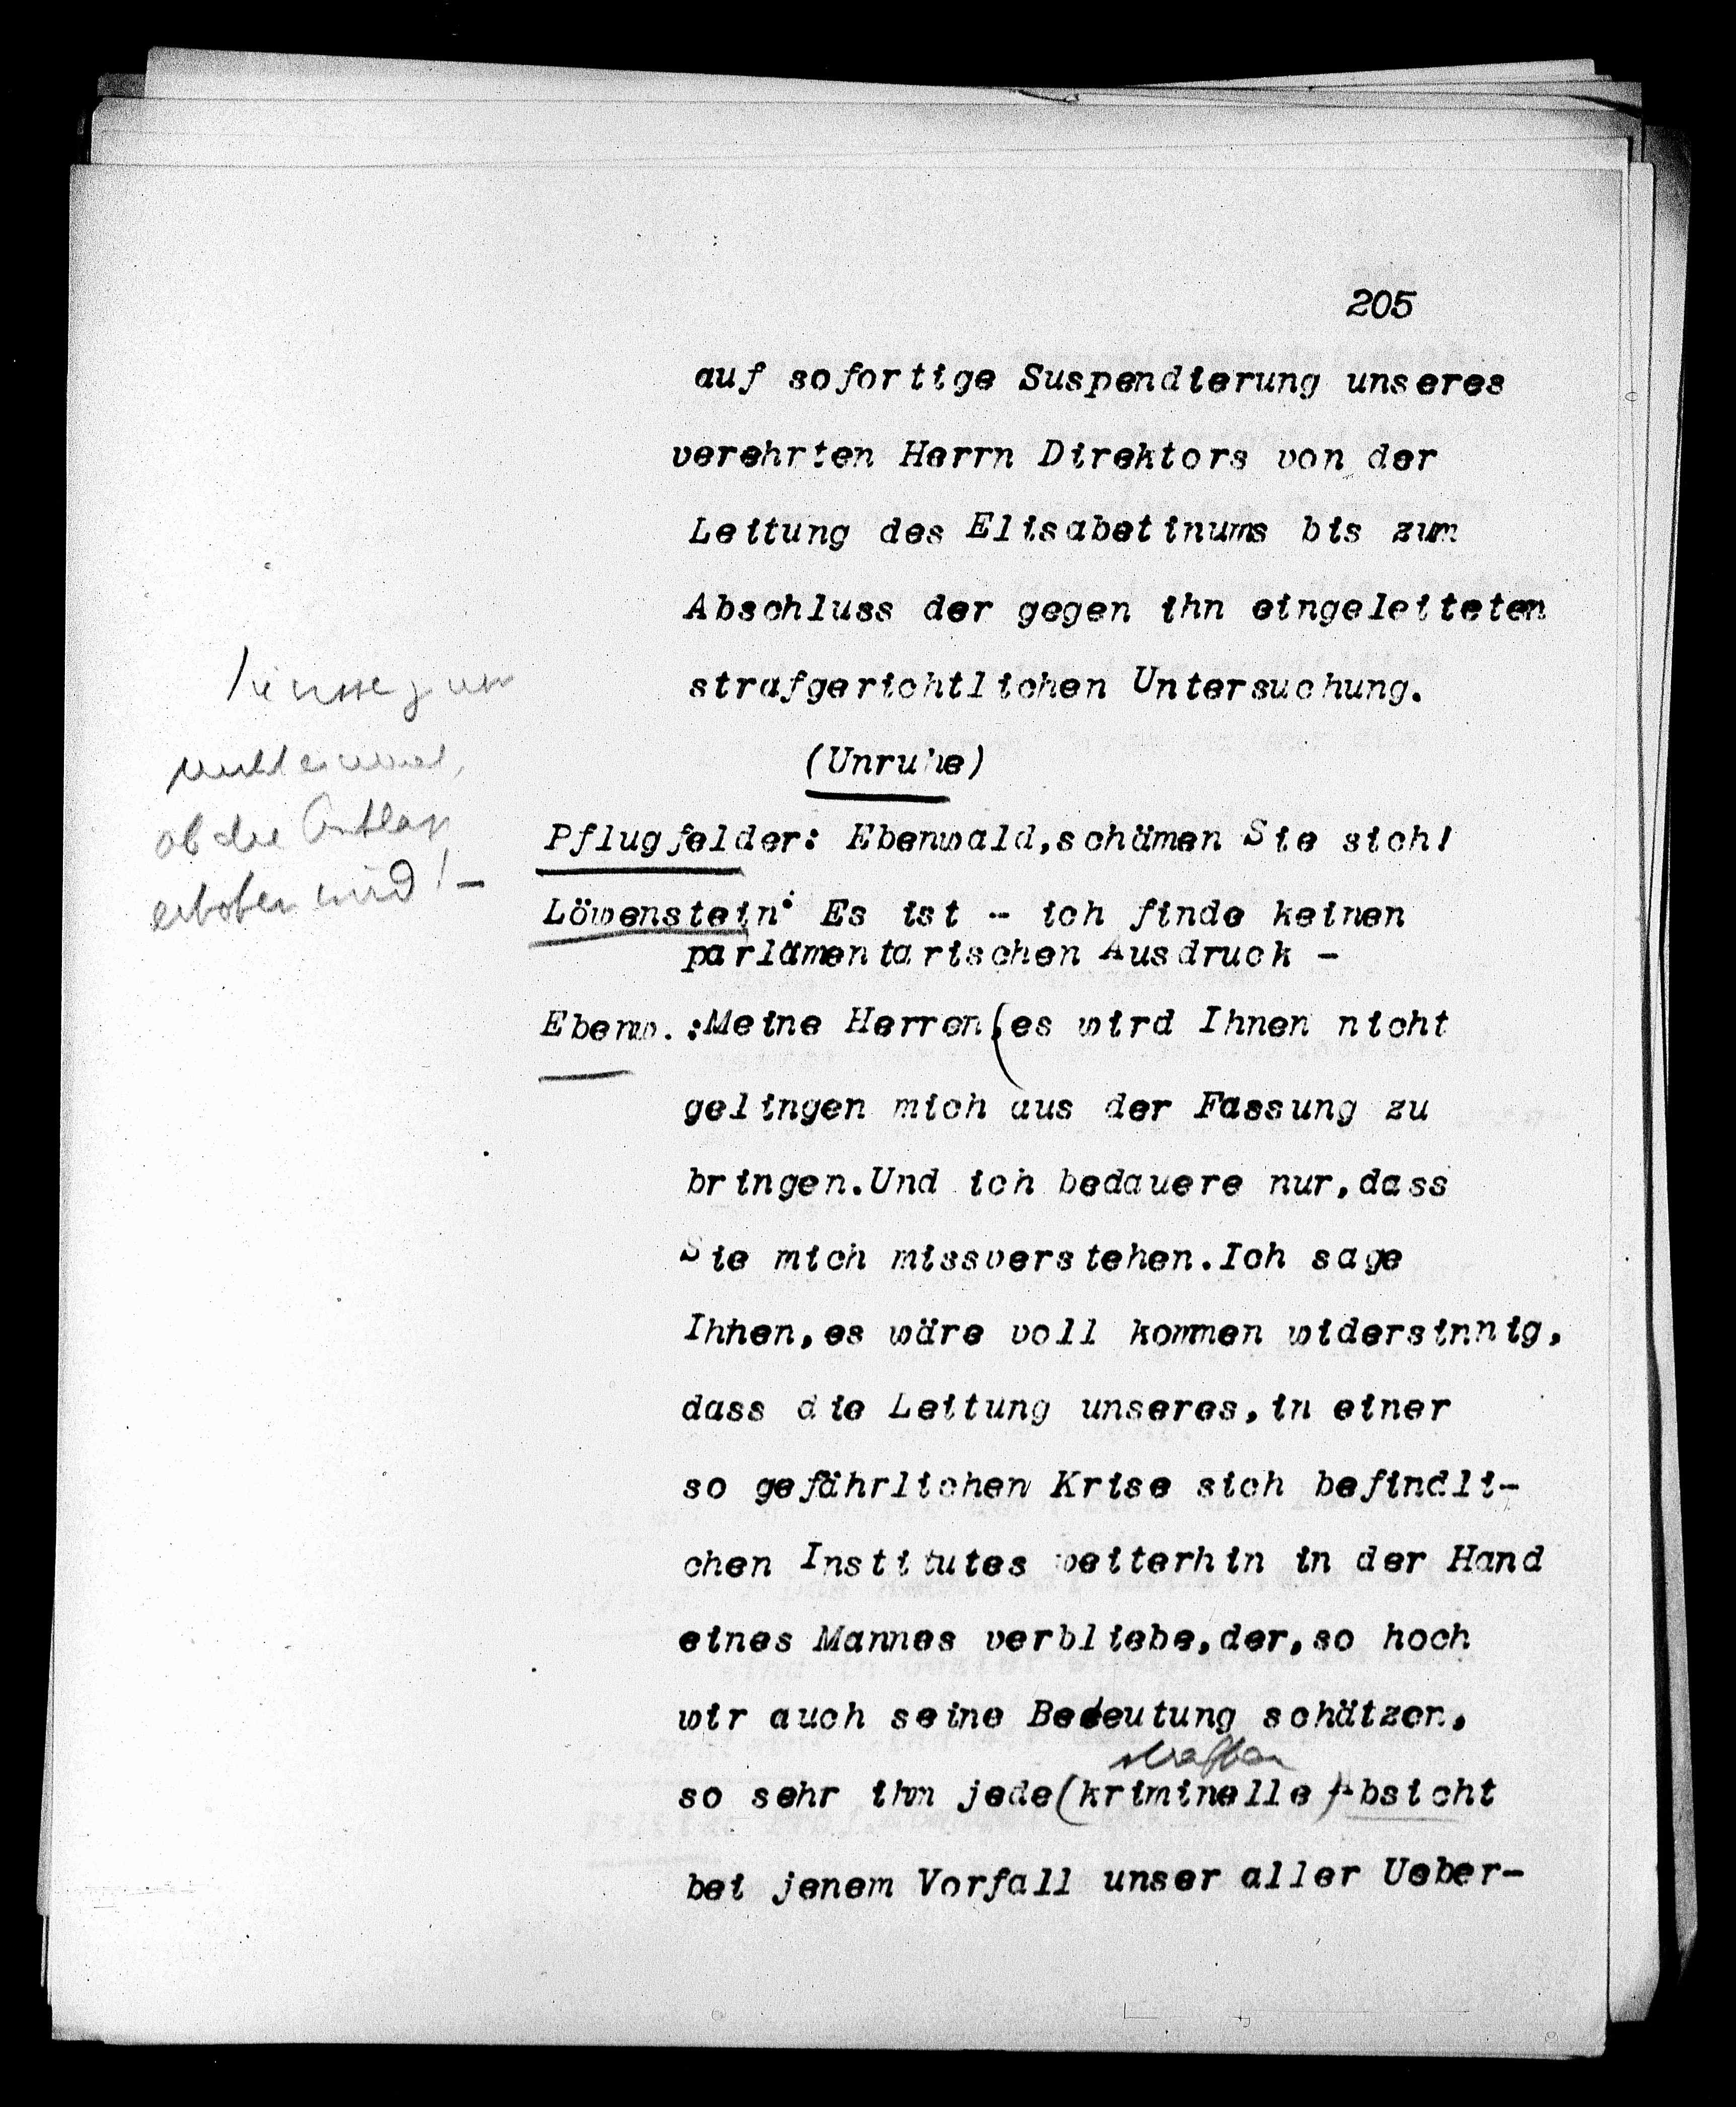 205
auf sofortige Suspendierung unseres
verehrten Herrn Direktors von der
Leitung des Elisabetinums bis zum
Abschluss der gegen ihn eingeleiteten
strafgerichtlichen Untersuchung.
(Unruhe)
ob die Anklage
erhoben wird! -
Pflugfelder: Ebenwald,schämen Sie sich!
Löwenstein: Es ist - ich finde keinen
parlämentarischen Ausdruck -
Ebenw.:Meine Herren(es wird Ihnen nicht
gelingen mich aus der Fassung zu
bringen.Und ich bedauere nur,dass
Sie mich missverstehen.Ich sage
Ihhen,es wäre voll kommen widersinnig,
dass die Leitung unseres,in einer
so gefährlichen Krise sich befindli-
chen Institutes weiterhin in der Hand
eines Mannes verbliebe,der,so hoch
wir auch seine Bedeutung schätzen,
strafbare
so sehr ihm jede(kriminelle)Absicht
bei jenem Vorfall unser aller Ueber-